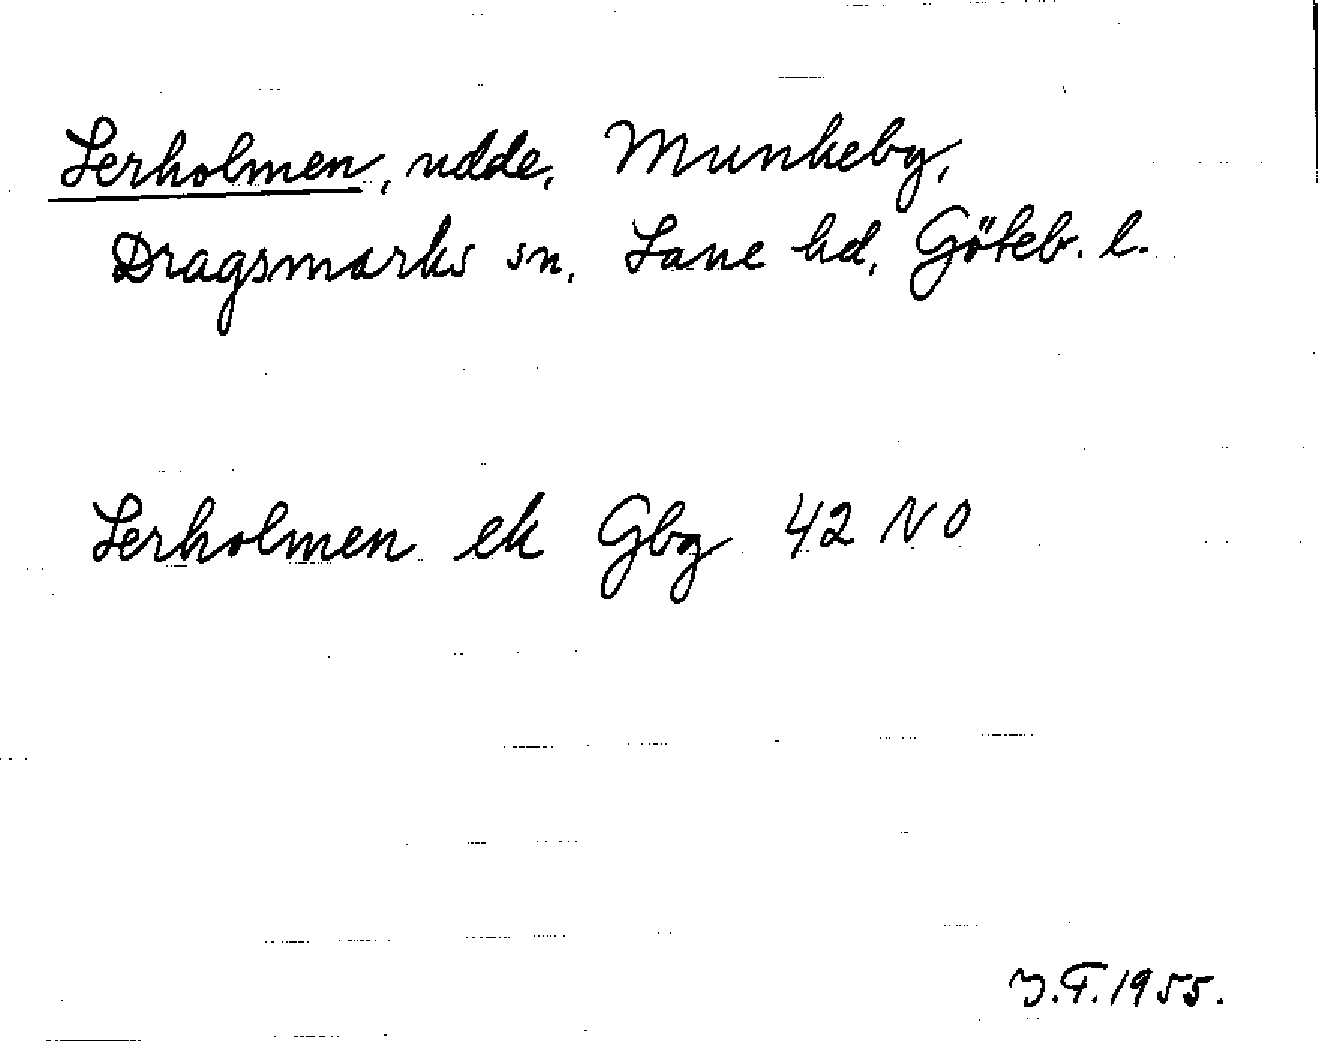 Lerholmen, udde, Munkeby,
Dragsmarks sn, Lane hd, Göteb. l.
Lerholmen ek Gbg 42 NO
J.T. 1955.